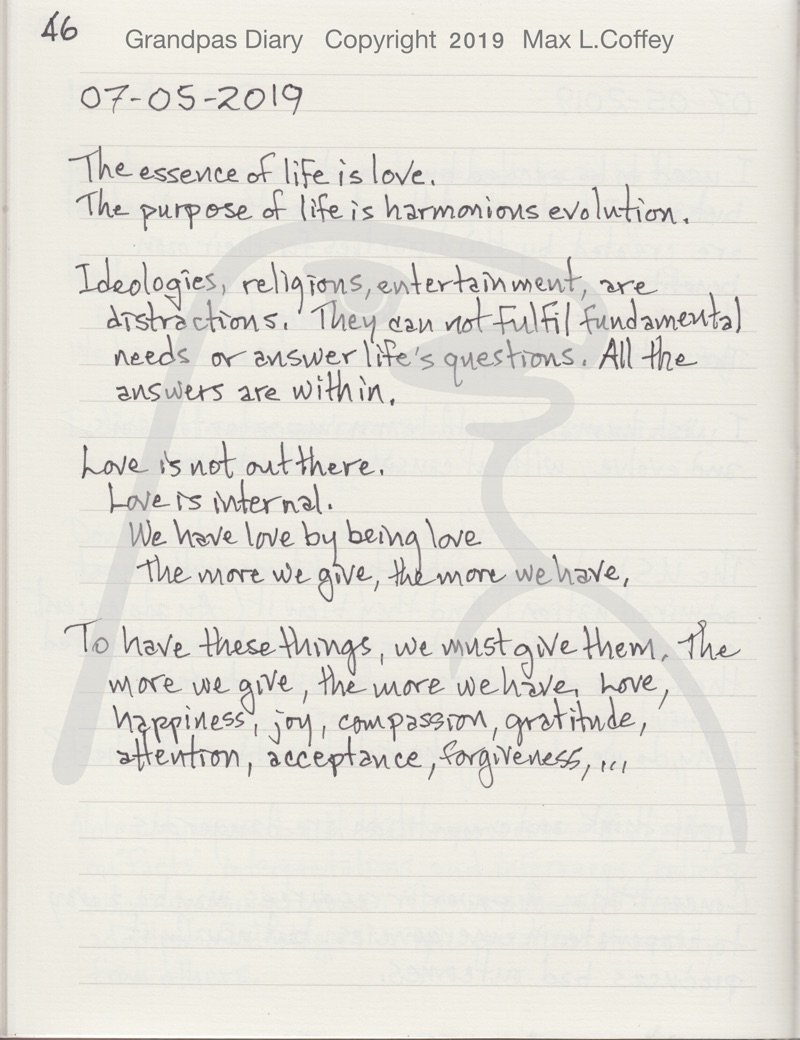 46
Grandpas Diary Copyright 2019 Max L.Coffey
07-05-2019
The essence of life is love.
The purpose of life is harmonious evolution.
Ideologies, religions, entertainment, are
distractions. They can not fulfil fundamental
needs or answer life's questions. All the
answers are within.
Love is not out there.
Love is internal.
We have love by being love
The more we give, the more we have,
To have these things, we must give them. The
more we give, the more we have. Love,
happiness, joy, compassion, gratitude,
attention, acceptance, forgiveness, ...